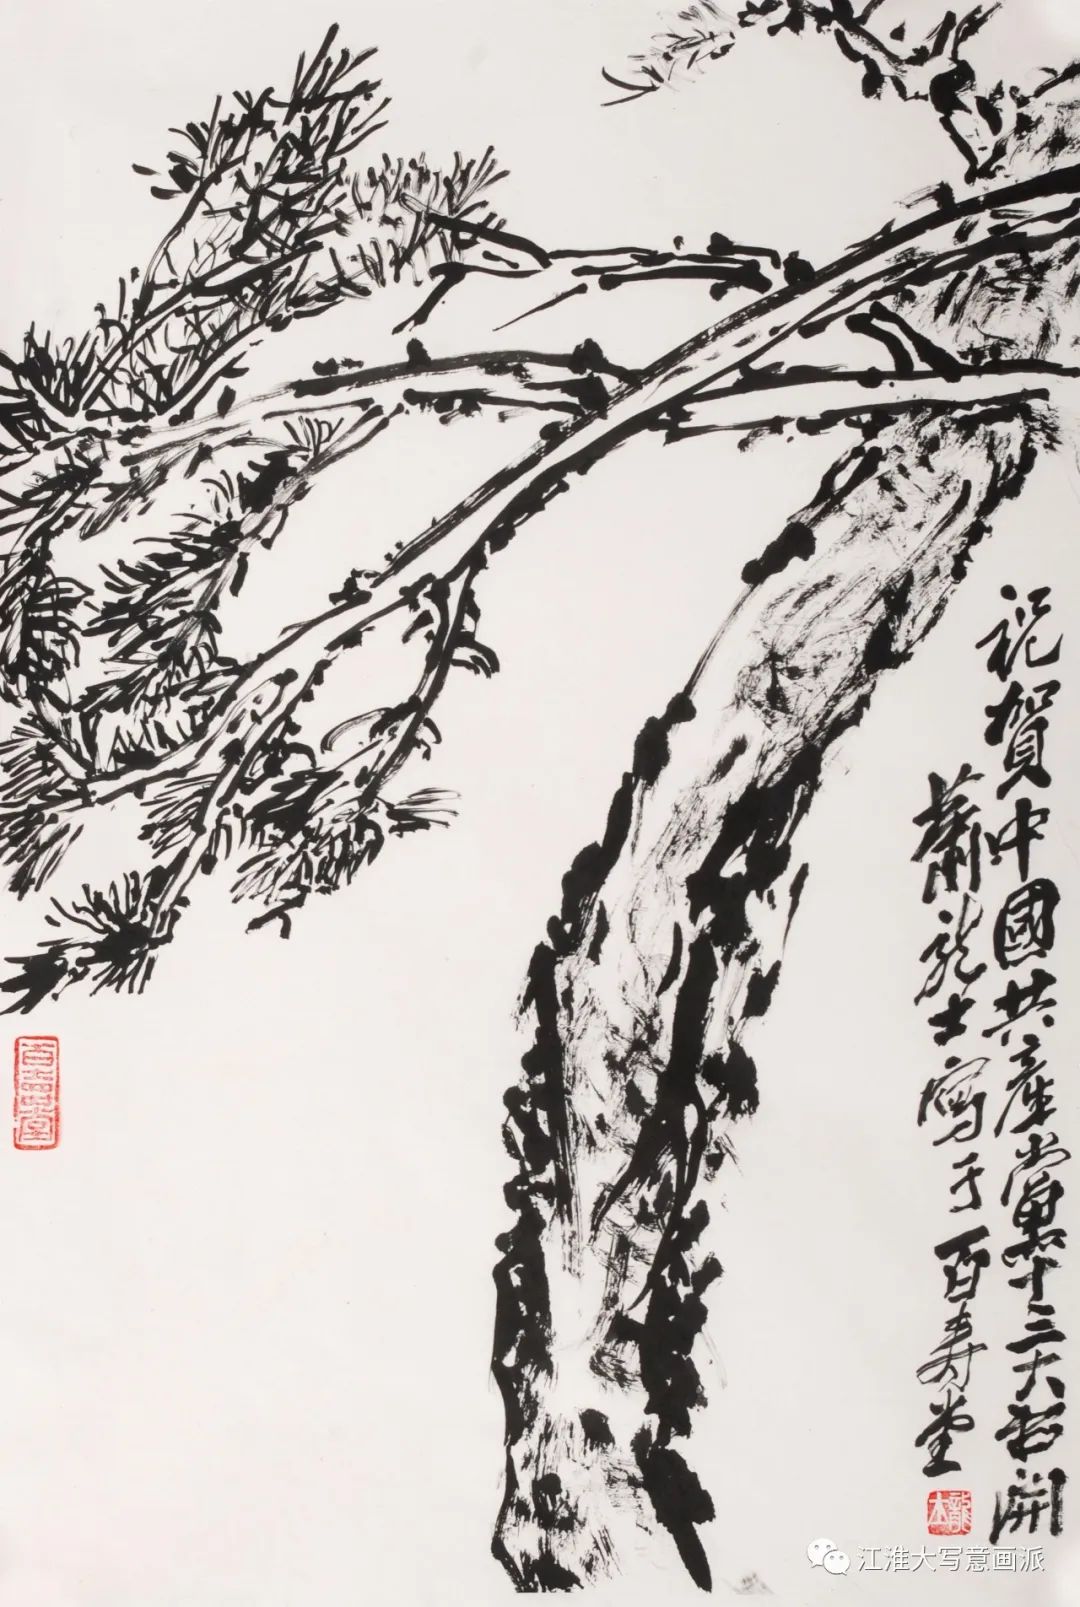 祝賀中國共產黨十二大召開
蕭龍士寫于百壽堂
龍士
江淮大写意画派